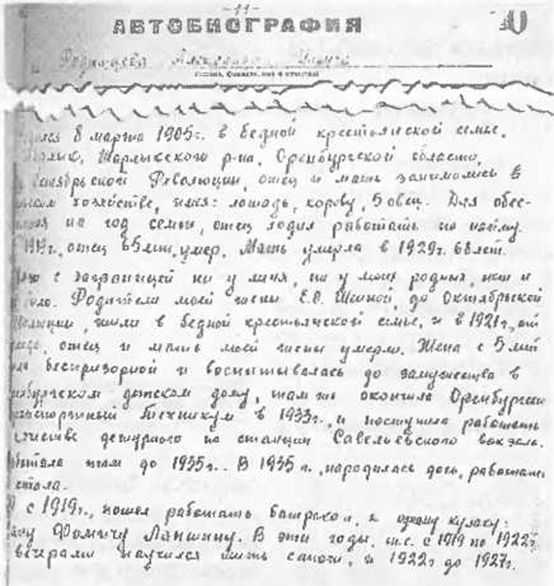 -11-
АВТОБИОГРАФИЯ
Родимцева Александра Ильича
8 марта 1905г. в бедной крестьянской семье.
Шарлыкского р-на, Оренбургской области,
Революции, отец и мать занимались в
хозяйстве, имея: лошадь, корову, 5 овец. Для обес-
на год семьи, отец ходил работать по найму.
1919г, отец 65 лет, умер. Мать умерла в 1929г. 68 лет.
с заграницей ни у меня, ни у моих родных, нет и
Родители моей жены Е.О. Шеиной, до Октябрьской
жили в бедной крестьянской семье, и в 1921г, от
отец и мать моей жены умерли. Жена с 5 лет
беспризорной и воспитывалась до замужества в
детском дому, там же окончила Оренбургский
техникум в 1933г, и поступила работать
дежурного на станции Савельевского вокзала.
там до 1935г.. В 1935г, народилась дочь, работать
стала.
с 1919г, пошел работать батраком, к одному кулаку:
Фомичу Лапшину. В эти годы, т.е. с 1919 по 1922г.
вечерами научился шить сапоги, и 1922г до 1927г.